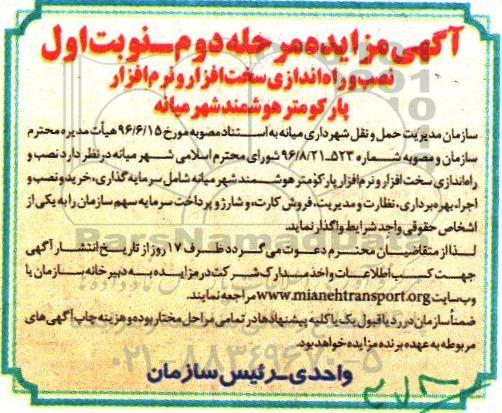 آگهی مزایده مرحله دوم - نوبت اول
نصب و راه‌اندازی سخت افزار و نرم افزار
پارکومتر هوشمند شهر میانه
سازمان مدیریت حمل و نقل شهرداری میانه به استناد مصوبه مورخ ۹۶/۶/۱۵ هیأت مدیره محترم
سازمان و مصوبه شماره ۵۲۳-۹۶/۸/۲۱ شورای محترم اسلامی شهر میانه در نظر دارد نصب و
راه‌اندازی سخت افزار و نرم‌افزار پارکومتر هوشمند شهر میانه شامل سرمایه گذاری، خرید و نصب و
اجرا، بهره‌برداری، نظارت و مدیریت، فروش کارت، و شارژ و پرداخت سرمایه سهم سازمان را به یکی از
اشخاص حقوقی واجد شرایط واگذار نماید.
لذا از متقاضیان محترم دعوت می‌گردد ظرف ۱۷ روز از تاریخ انتشار آگهی
جهت کسب اطلاعات و اخذ مدارک شرکت در مزایده به دبیرخانه سازمان یا
وب‌سایت www.mianehtransport.org مراجعه نمایند.
ضمناً سازمان در رد یا قبول یک یا کلیه پیشنهادها در تمامی مراحل مختار بوده و هزینه چاپ آگهی‌های
مربوطه به عهده برنده مزایده خواهد بود.
واحدی - رئیس سازمان
ParsNamadData
۰۲۱-۸۸۳۴۹۶۷۰-۵